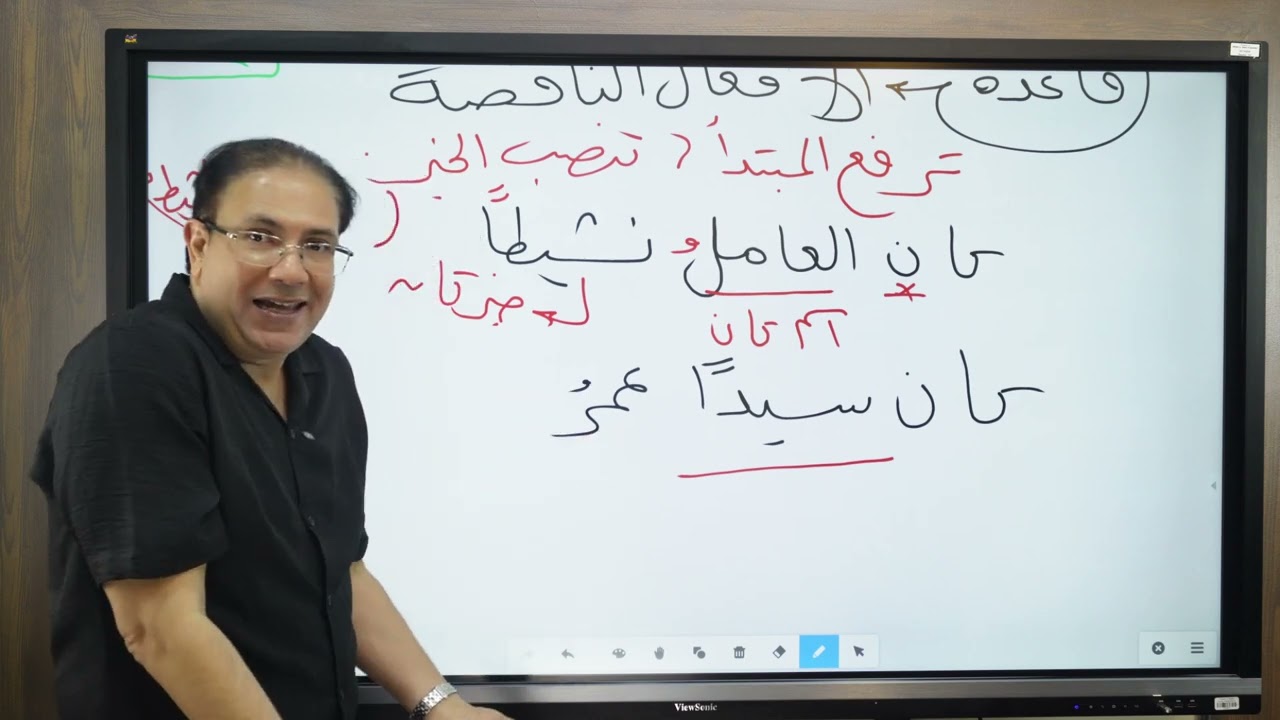 قاعدة ← الافعال الناقصة
ترفع المبتدأ ( تنصب الخبر
كان العاملُ نشيطًا
اسم كان
خبر كان
كان سيدًا عمرُ
ViewSonic